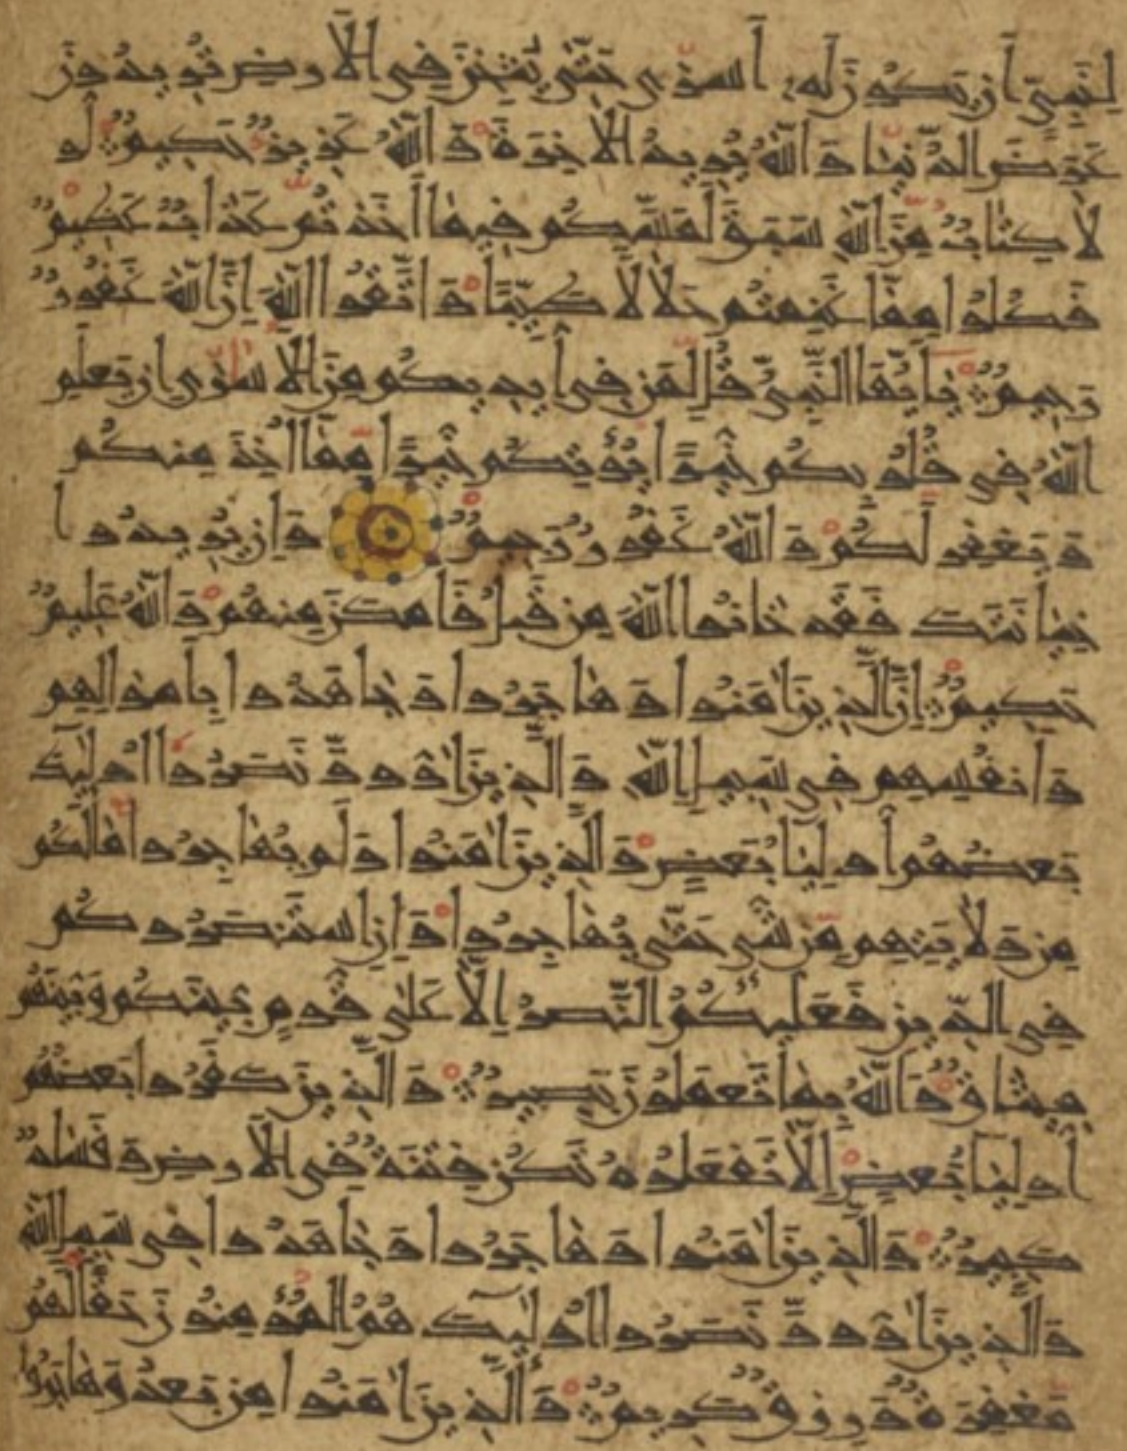 لِنَبِيٍّ أَن يَكُونَ لَهُ أَسْرَىٰ حَتَّىٰ يُثْخِنَ فِي الْأَرْضِ تُرِيدُونَ
عَرَضَ الدُّنْيَا وَاللَّهُ يُرِيدُ الْآخِرَةَ وَاللَّهُ عَزِيزٌ حَكِيمٌ لَو
لَا كِتَابٌ مِنَ اللَّهِ سَبَقَ لَمَسَّكُمْ فِيمَا أَخَذْتُمْ عَذَابٌ عَظِيمٌ
فَكُلُوا مِمَّا غَنِمْتُمْ حَلَالًا طَيِّبًا وَاتَّقُوا اللَّهَ إِنَّ اللَّهَ غَفُورٌ
رَحِيمٌ يَا أَيُّهَا النَّبِيُّ قُل لِمَن فِي أَيْدِيكُمْ مِنَ الْأَسْرَىٰ إِن يَعْلَمِ
اللَّهُ فِي قُلُوبِكُمْ خَيْرًا يُؤْتِكُمْ خَيْرًا مِمَّا أُخِذَ مِنكُمْ
وَيَغْفِرْ لَكُمْ وَاللَّهُ غَفُورٌ رَحِيمٌ وَإِن يُرِيدُوا
خِيَانَتَكَ فَقَدْ خَانُوا اللَّهَ مِن قَبْلُ فَأَمْكَنَ مِنْهُمْ وَاللَّهُ عَلِيمٌ
حَكِيمٌ إِنَّ الَّذِينَ آمَنُوا وَهَاجَرُوا وَجَاهَدُوا بِأَمْوَالِهِمْ
وَأَنفُسِهِمْ فِي سَبِيلِ اللَّهِ وَالَّذِينَ آوَوْا وَنَصَرُوا أُولَٰئِكَ
بَعْضُهُمْ أَوْلِيَاءُ بَعْضٍ وَالَّذِينَ آمَنُوا وَلَمْ يُهَاجِرُوا مَا لَكُمْ
مِن وَلَايَتِهِمْ مِن شَيْءٍ حَتَّىٰ يُهَاجِرُوا وَإِنِ اسْتَنصَرُوكُمْ
فِي الدِّينِ فَعَلَيْكُمُ النَّصْرُ إِلَّا عَلَىٰ قَوْمٍ بَيْنَكُمْ وَبَيْنَهُمْ
مِيثَاقٌ وَاللَّهُ بِمَا تَعْمَلُونَ بَصِيرٌ وَالَّذِينَ كَفَرُوا بَعْضُهُمْ
أَوْلِيَاءُ بَعْضٍ إِلَّا تَفْعَلُوهُ تَكُن فِتْنَةٌ فِي الْأَرْضِ وَفَسَادٌ
كَبِيرٌ وَالَّذِينَ آمَنُوا وَهَاجَرُوا وَجَاهَدُوا فِي سَبِيلِ اللَّهِ
وَالَّذِينَ آوَوْا وَنَصَرُوا أُولَٰئِكَ هُمُ الْمُؤْمِنُونَ حَقًّا لَهُمْ
مَغْفِرَةٌ وَرِزْقٌ كَرِيمٌ وَالَّذِينَ آمَنُوا مِن بَعْدُ وَهَاجَرُوا